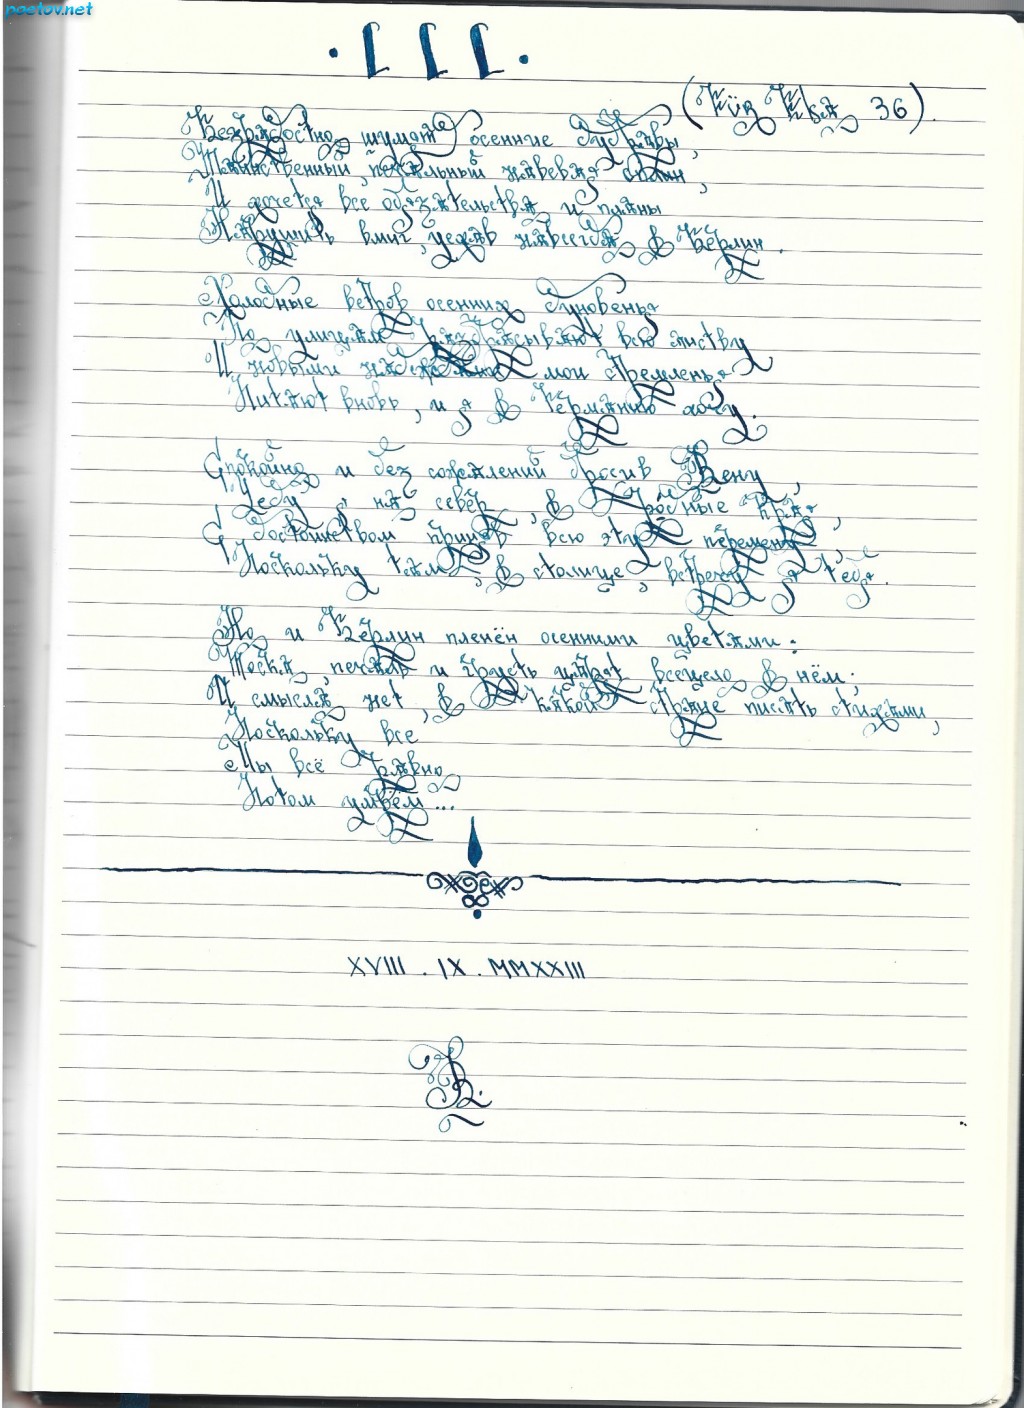 poetov.net
. I I I .
(Für Elsa 36).
Безрадостно шумят осенние дубравы,
Таинственный, печальный навевая сплин,
И хочется все обязательства и планы
Нарушить вмиг, уехав навсегда в Берлин.
Холодные ветров осенних дуновенья
По улицам разбрасывают всю листву
И новыми надеждами мои стремленья
Питают вновь, и я в Германию хочу.
Спокойно и без сожалений бросив Вену,
Уеду я на север, в родные края,
С достоинством приняв всю эту перемену,
Поскольку там, в столице, встречу я тебя.
Но и Берлин пленён осенними цветами:
Тоска, печаль и грусть царят всецело в нём;
И смысла нет, в какой стране писать стихами,
Поскольку все
Мы всё равно
Потом умрём...
XVIII . IX . MMXXIII
В.